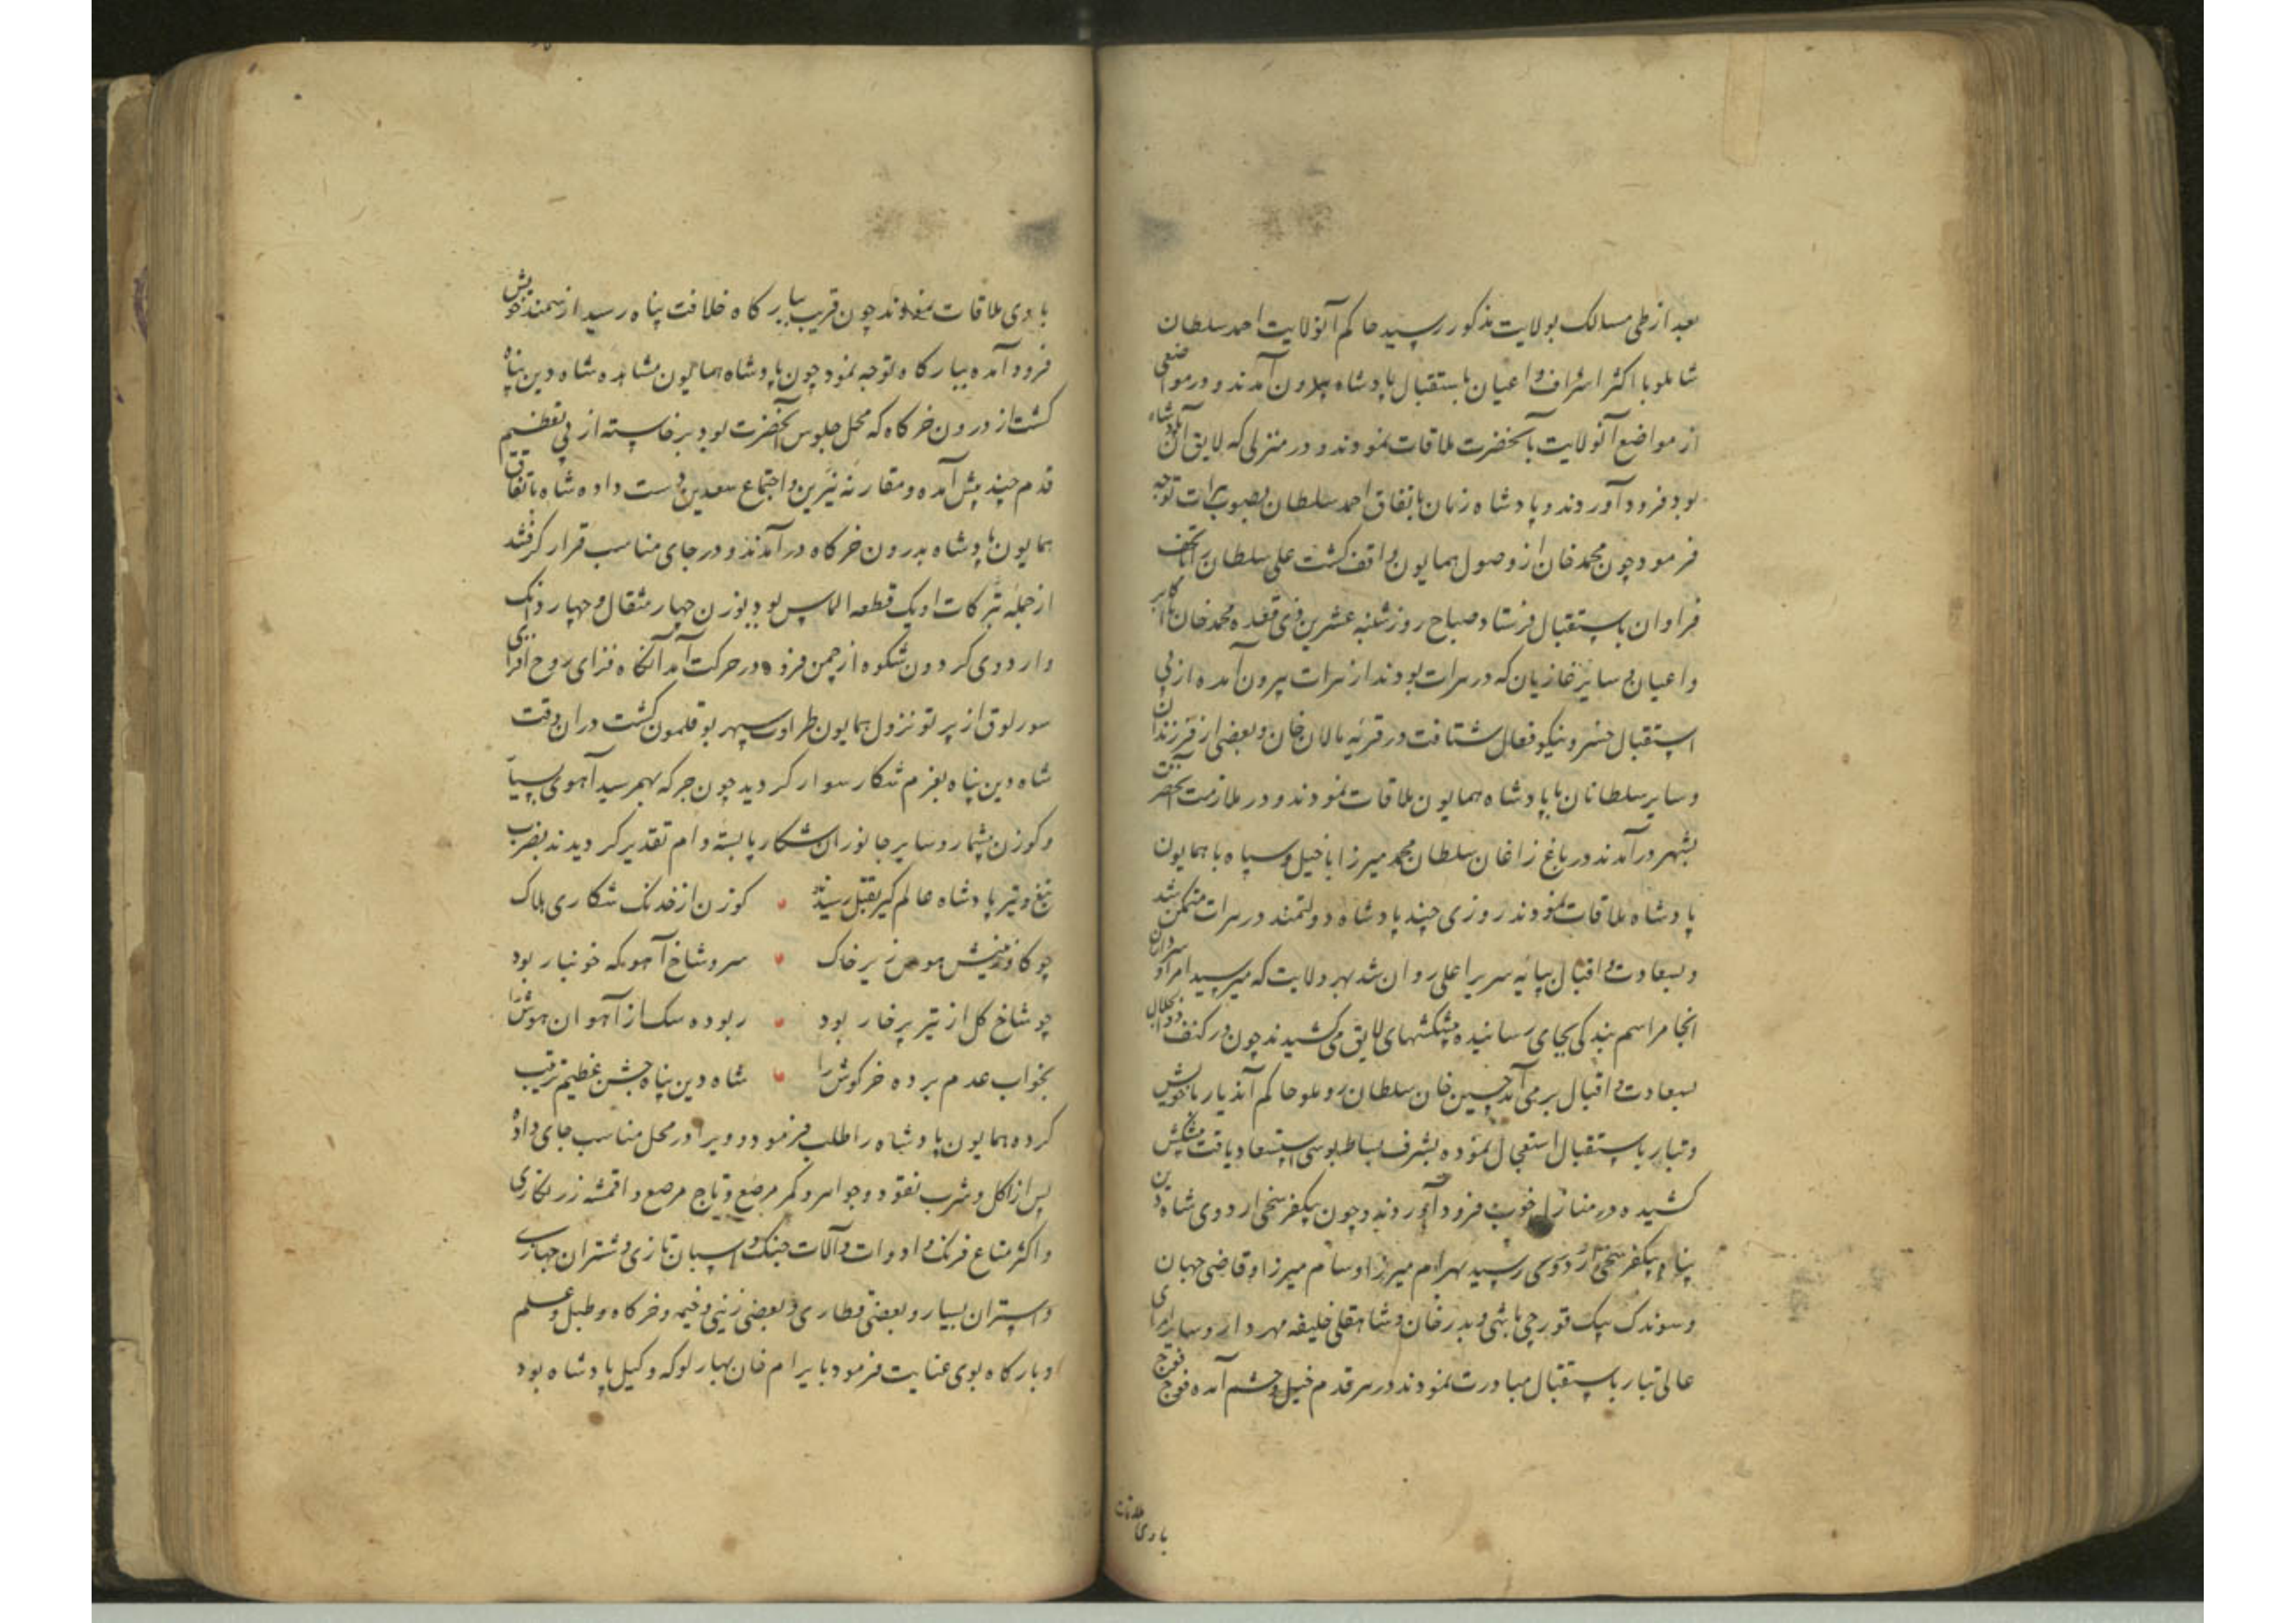 بعد از طی مسالک بولایت مذکور رسید حاکم آنولایت احمد سلطان
شاملو با اکثر اشراف و اعیان باستقبال پادشاه بیرون آمدند و در موضعی
از مواضع آنولایت بآنحضرت ملاقات نمودند و در منزلی که لایق آن پادشاه
بود فرود آوردند و پادشاه زمان باتفاق احمد سلطان بصوب هرات توجه
فرمود چون محمد خان از وصول همایون واقف گشت علی سلطان را با تحف
فراوان باستقبال فرستاد صباح روز شنبه عشرین ذی قعده محمد خان با اکابر
و اعیان و سایر غازیان که در هرات بودند از هرات بیرون آمده از پی
استقبال خسرو نیکو فعال شتافت در قریه مالان خان و بعضی از فرزندان
و سایر سلطانان با پادشاه همایون ملاقات نمودند و در ملازمت آنحضرت
بشهر درآمدند در باغ زاغان سلطان محمد میرزا با خیل و سپاه با همایون
پادشاه ملاقات نمودند روزی چند پادشاه دولتمند در هرات متمکن شد
و بسعادت و اقبال بپایه سریر اعلی روان شد بهر ولایت که میرسید امرا و سرداران
آنجا مراسم بندگی بجای رسانیده پیشکشهای لایق می کشیدند چون در کنف ذو الجلال
بسعادت و اقبال برمی آمد حسین خان سلطان روملو حاکم آندیار با خویش
و تبار باستقبال استعجال نموده بشرف بساط بوسی استسعاد یافت پیشکش
کشیده در منازل خوب فرود آوردند و چون بیکفرسخی اردوی شاه دین
پناه بیکفرسخی اردوی رسید بهرام میرزا و سام میرزا و قاضی جهان
و سوندک بیک قورچی باشی و بدر خان و شاهقلی خلیفه مهردار و سایر امرای
عالی تبار باستقبال مبادرت نمودند در هر قدم خیل و حشم آمده فوج فوج
با وی ملاقات
با وی ملاقات نمودند چون قریب ببارگاه خلافت پناه رسید از سمند خویش
فرود آمده ببارگاه توجه نمود چون پادشاه همایون مشاهده شاه دین پناه
گشت از درون خرگاه که محل جلوس آنحضرت بود برخاسته از پی تعظیم
قدم چند پیش آمده و مقارنه نیرین و اجتماع سعدین دست داده شاه باتفاق
همایون پادشاه بدرون خرگاه درآمدند و در جای مناسب قرار گرفتند
از جمله تبرکات او یک قطعه الماس بود بوزن چهار مثقال و چهار دانک
و اردوی گردون شکوه از چمن فرود در حرکت آمد آنگاه فزای روح افزای
سورلوق از پرتو نزول همایون طراوت سپهر بوقلمون گشت در ان وقت
شاه دین پناه بعزم شکار سوار گردید چون جرگه بهم رسید آهوی بسیار
و گوزن بیشمار و سایر جانوران شکار پا بسته دام تقدیر گردیدند بضرب
تیغ و تیر پادشاه عالم گیر بقتل رسیدند گوزن از خدنک شکاری هلاک
چو گاو زمینش هوس زیر خاک سر و شاخ آهو که خونبار بود
چو شاخ گل از تیر پر خار بود ربوده سک از آهوان هوش را
بخواب عدم برده خرگوش را شاه دین پناه جشن عظیم ترتیب
کرده همایون پادشاه را طلب فرمود و ویرا در محل مناسب جای داده
پس از اکل و شرب نقود و جواهر و کمر مرصع و تاج مرصع و اقمشه زرنگاری
و اکثر متاع فرنگ و ادوات و آلات جنک و اسبان تازی و شتران جهازی
و استران بسیار و بعضی قطاری و بعضی زینی و خیمه و خرگاه و طبل و علم
و بارگاه بوی عنایت فرمود بایرام خان بهارلو که وکیل پادشاه بود